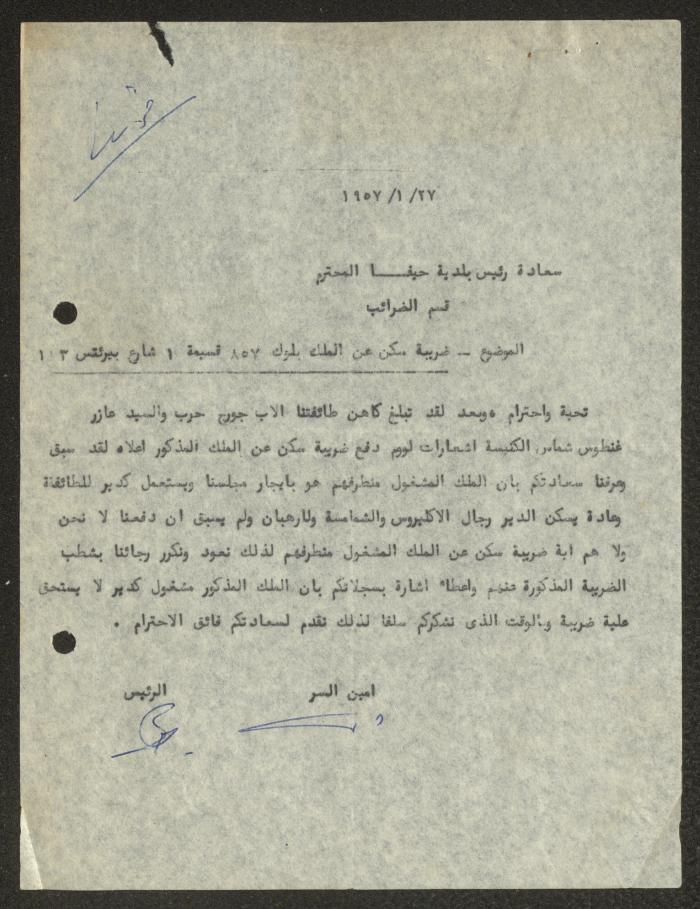 ١٩٥٧/١/٢٧
سعادة رئيس بلدية حيفــــا المحترم
قسم الضرائب
الموضوع ــ ضريبة سكن عن الملك بلوك ٨٥٧ قسيمة ١ شارع
تحية واحترام وبعد لقد تبلغ كاهن طائفتنا الاب جورج حرب والسيد عازر
غنطوس شماس الكنيسة اشعارات لزوم دفع ضريبة سكن عن الملك المذكور اعلاه لقد سبق
وعرفنا سعادتكم بان الملك المشغول منطرفهم هو بايجار مجلسنا ويستعمل كدير للطائفة
وعادة يسكن الدير رجال الاكليروس والشمامسة ولم يسبق ان دفعنا لا نحن
ولا هم اية ضريبة سكن عن الملك المشغول منطرفهم لذلك نعود ونكرر رجائنا بشطب
الضريبة المذكورة عنهم واعطاء اشارة بسجلاتكم بان الملك المذكور مشغول كدير لا يستحق
علية ضريبة وبالوقت الذى نشكركم سلفا لذلك نقدم لسعادتكم فائق الاحترام .
امين السر
الرئيس